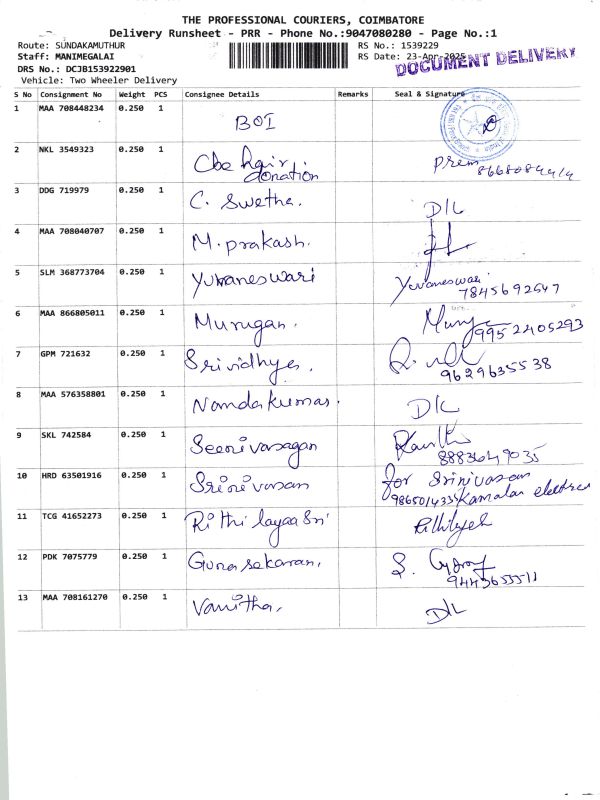 THE PROFESSIONAL COURIERS, COIMBATORE
Delivery Runsheet - PRR - Phone No.:9047080280 - Page No.:1
Route: SUNDAKAMUTHUR RS No.: 1539229
Staff: MANIMEGALAI RS Date: 23-Apr-2025
DOCUMENT DELIVERY
DRS No.: DCJB153922901
Vehicle: Two Wheeler Delivery
S No Consignment No Weight PCS Consignee Details Remarks Seal & Signature
1 MAA 708448234 0.250 1 BOI
2 NKL 3549323 0.250 1 Cbe hair donation Prem
3 DDG 719979 0.250 1 C. Swetha. D/L
4 MAA 708040707 0.250 1 M. prakash.
5 SLM 368773704 0.250 1 Yuvaneswari Yuvaneswari
7845692647
6 MAA 866805011 0.250 1 Murugan.
9952405293
7 GPM 721632 0.250 1 Srividhya.
9629635538
8 MAA 576358801 0.250 1 Nandakumar. D/L
9 SKL 742584 0.250 1 Seenivasagan
8883649035
10 HRD 63501916 0.250 1 Srinivasan for Srinivasan
Kamalan
11 TCG 41652273 0.250 1 Rithilayaa Sri
12 PDK 7075779 0.250 1 Gunasekaran.
13 MAA 708161270 0.250 1 Vanitha. D/L